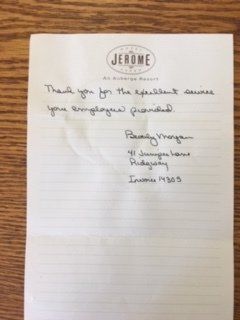 HOTEL
JEROME
ASPEN
An Auberge Resort
Thank you for the excellent service
your employees provided
Beverly Morgan
41 Juniper Lane
Ridgway
Invoice 14305